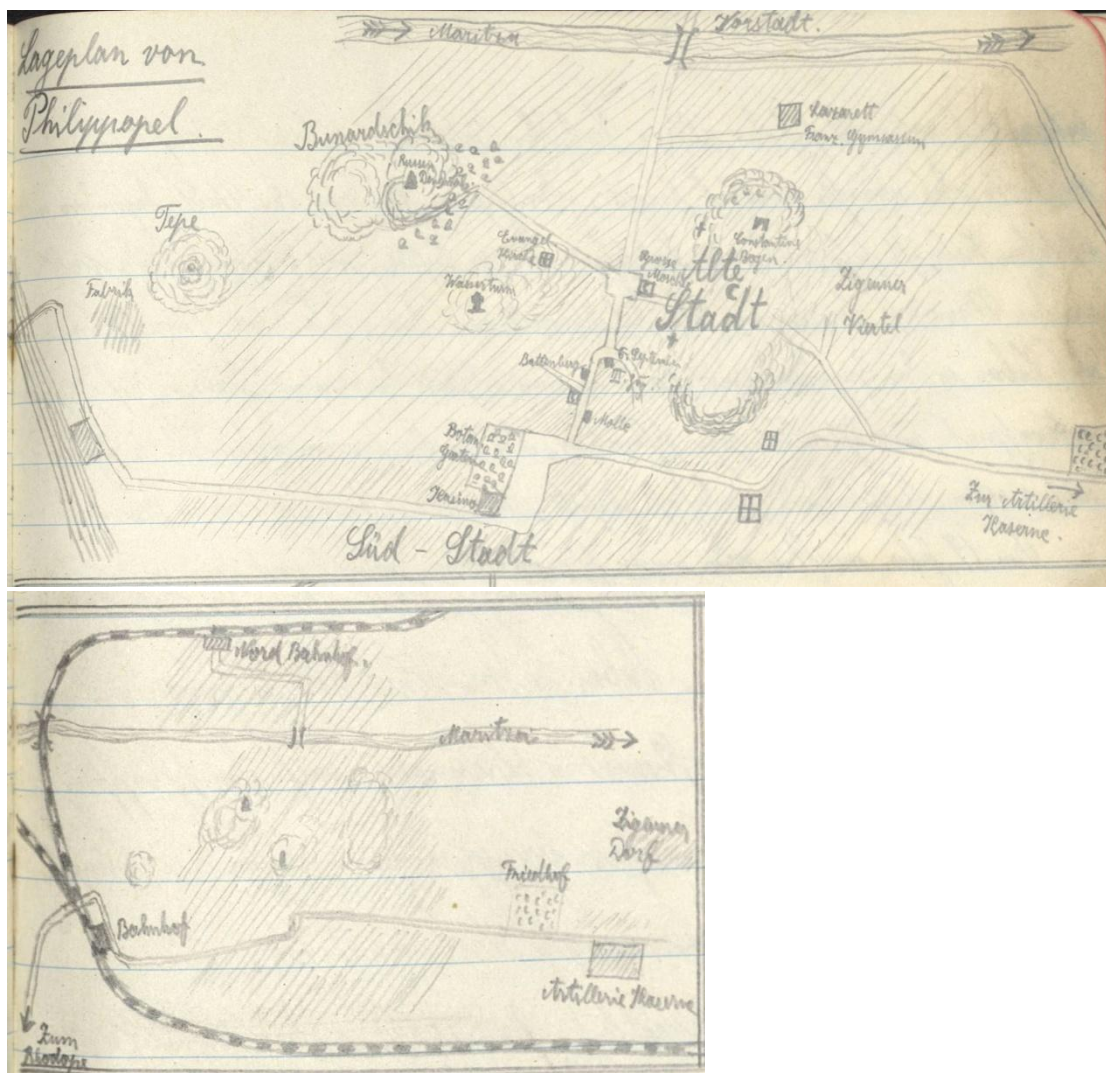 Lageplan von
Philippopel.
Maritza
Vorstadt.
Bunardschik
Russen
Lazarett
Franz. Gymnasium
Tepe
Fabrik
Evangel.
Kirche
Wasserturm
Constantins
Bogen.
Grosse
Alte
Stadt
Zigeuner
Viertel
Battenberg
Molle
Botan.
Garten
Kasino
Süd-Stadt
Zur Artillerie
Kaserne.
Nord Bahnhof.
Maritza
Zigeuner
Dorf
Friedhof
Bahnhof
Artillerie Kaserne
Zum
Rhodope